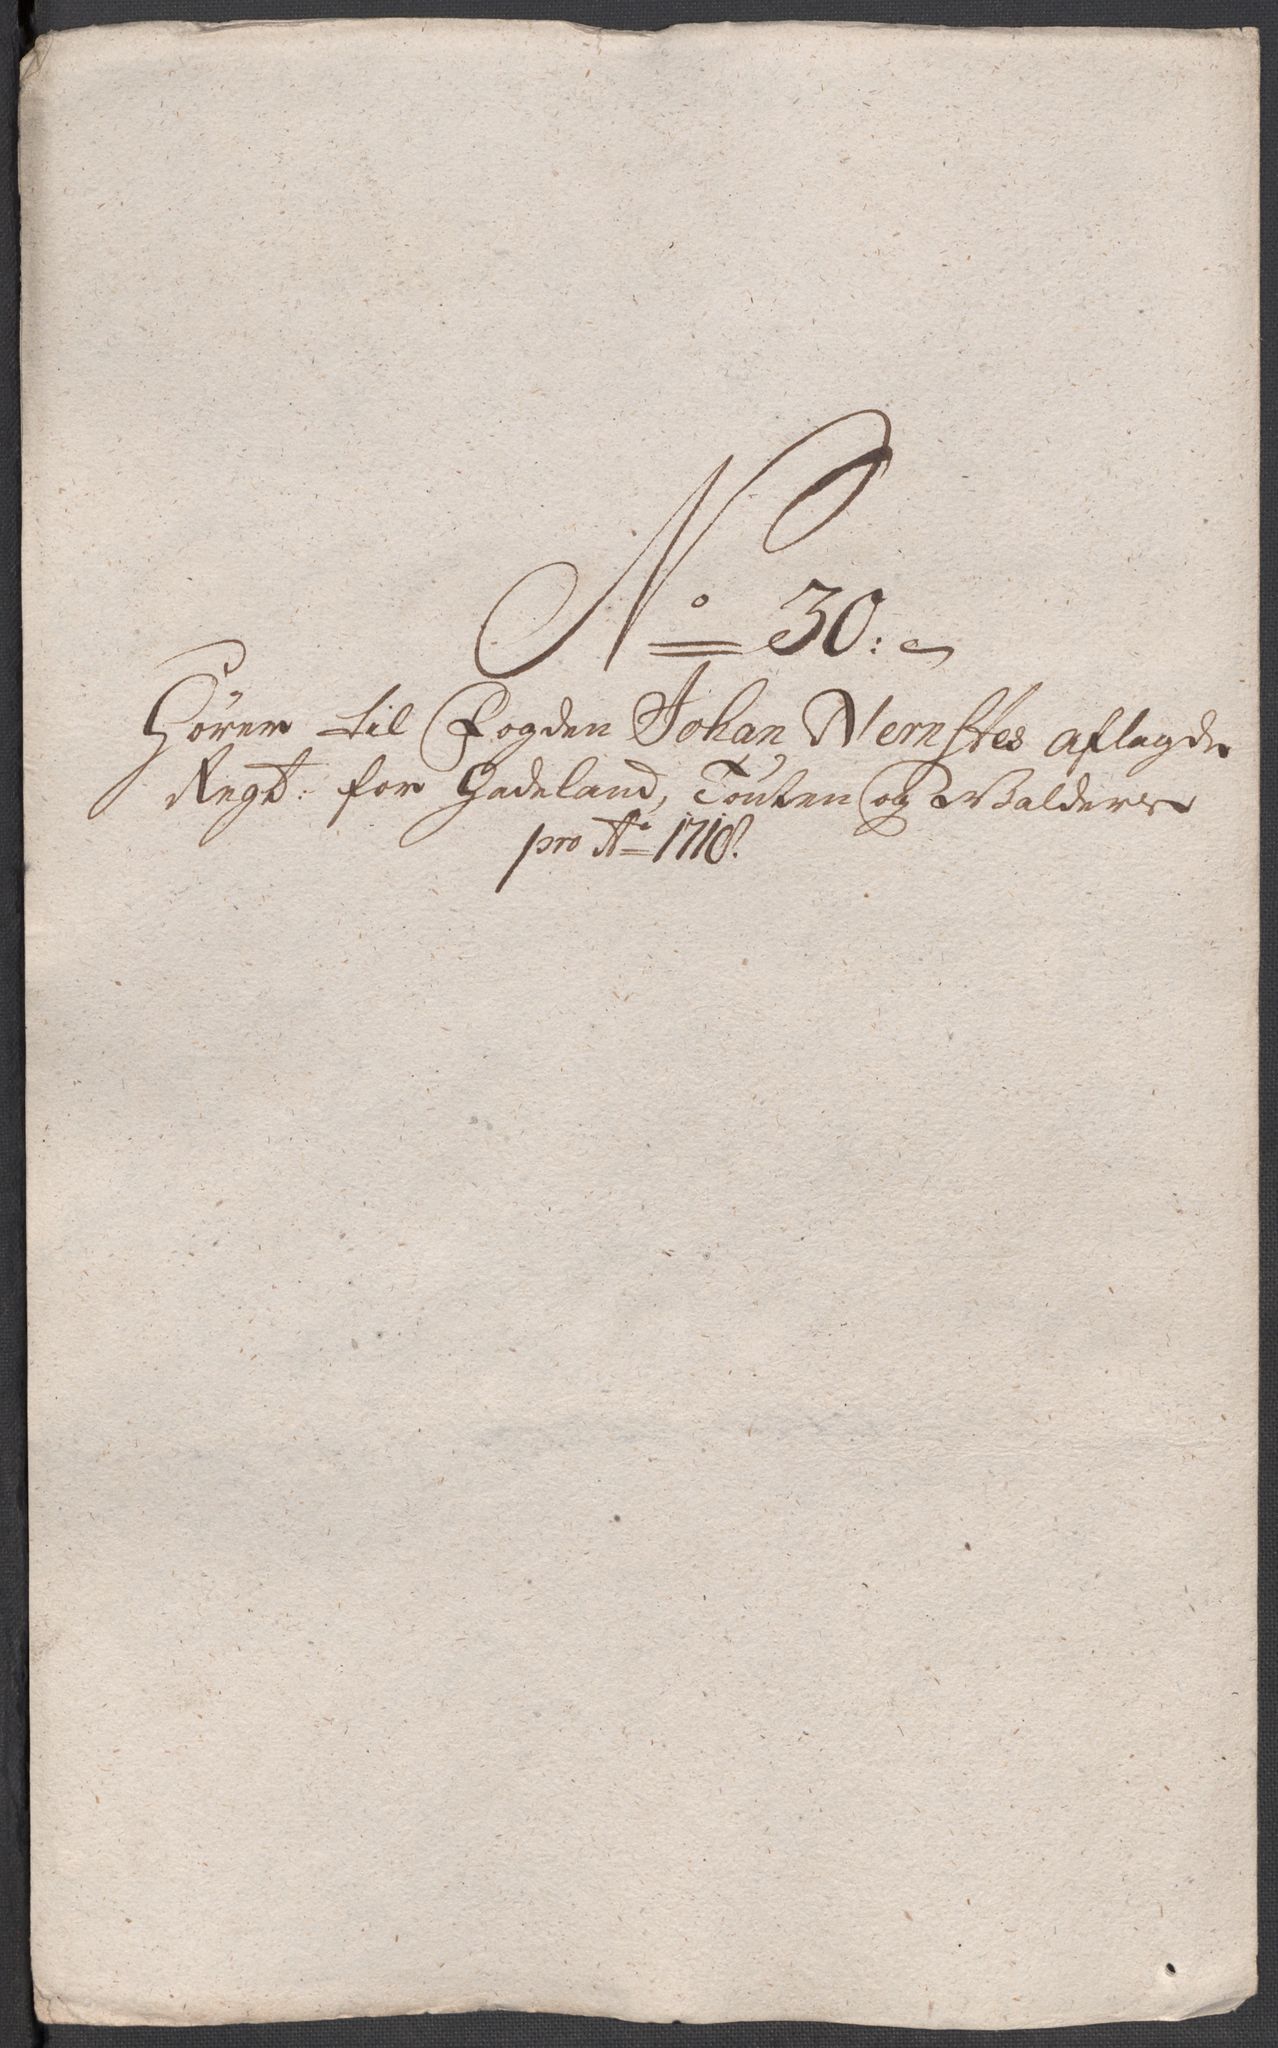 No 30:
Hörer til Fogden Johan Nernstes aflagde
Regt: for Hadeland, Touten og Walders
pro Ao 1718.